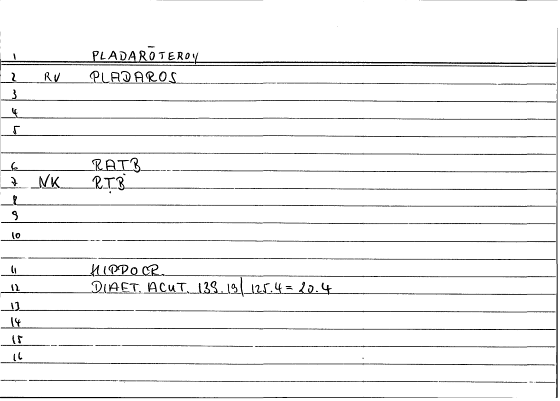 1 PLADARŌTEROY
2 RV PLADAROS
3
4
5
6 RAṬB
7 NK RṬB
8
9
10
11 HIPPOCR.
12 DIAET. ACUT. 139.19| 125.4 = 20.4
13
14
15
16